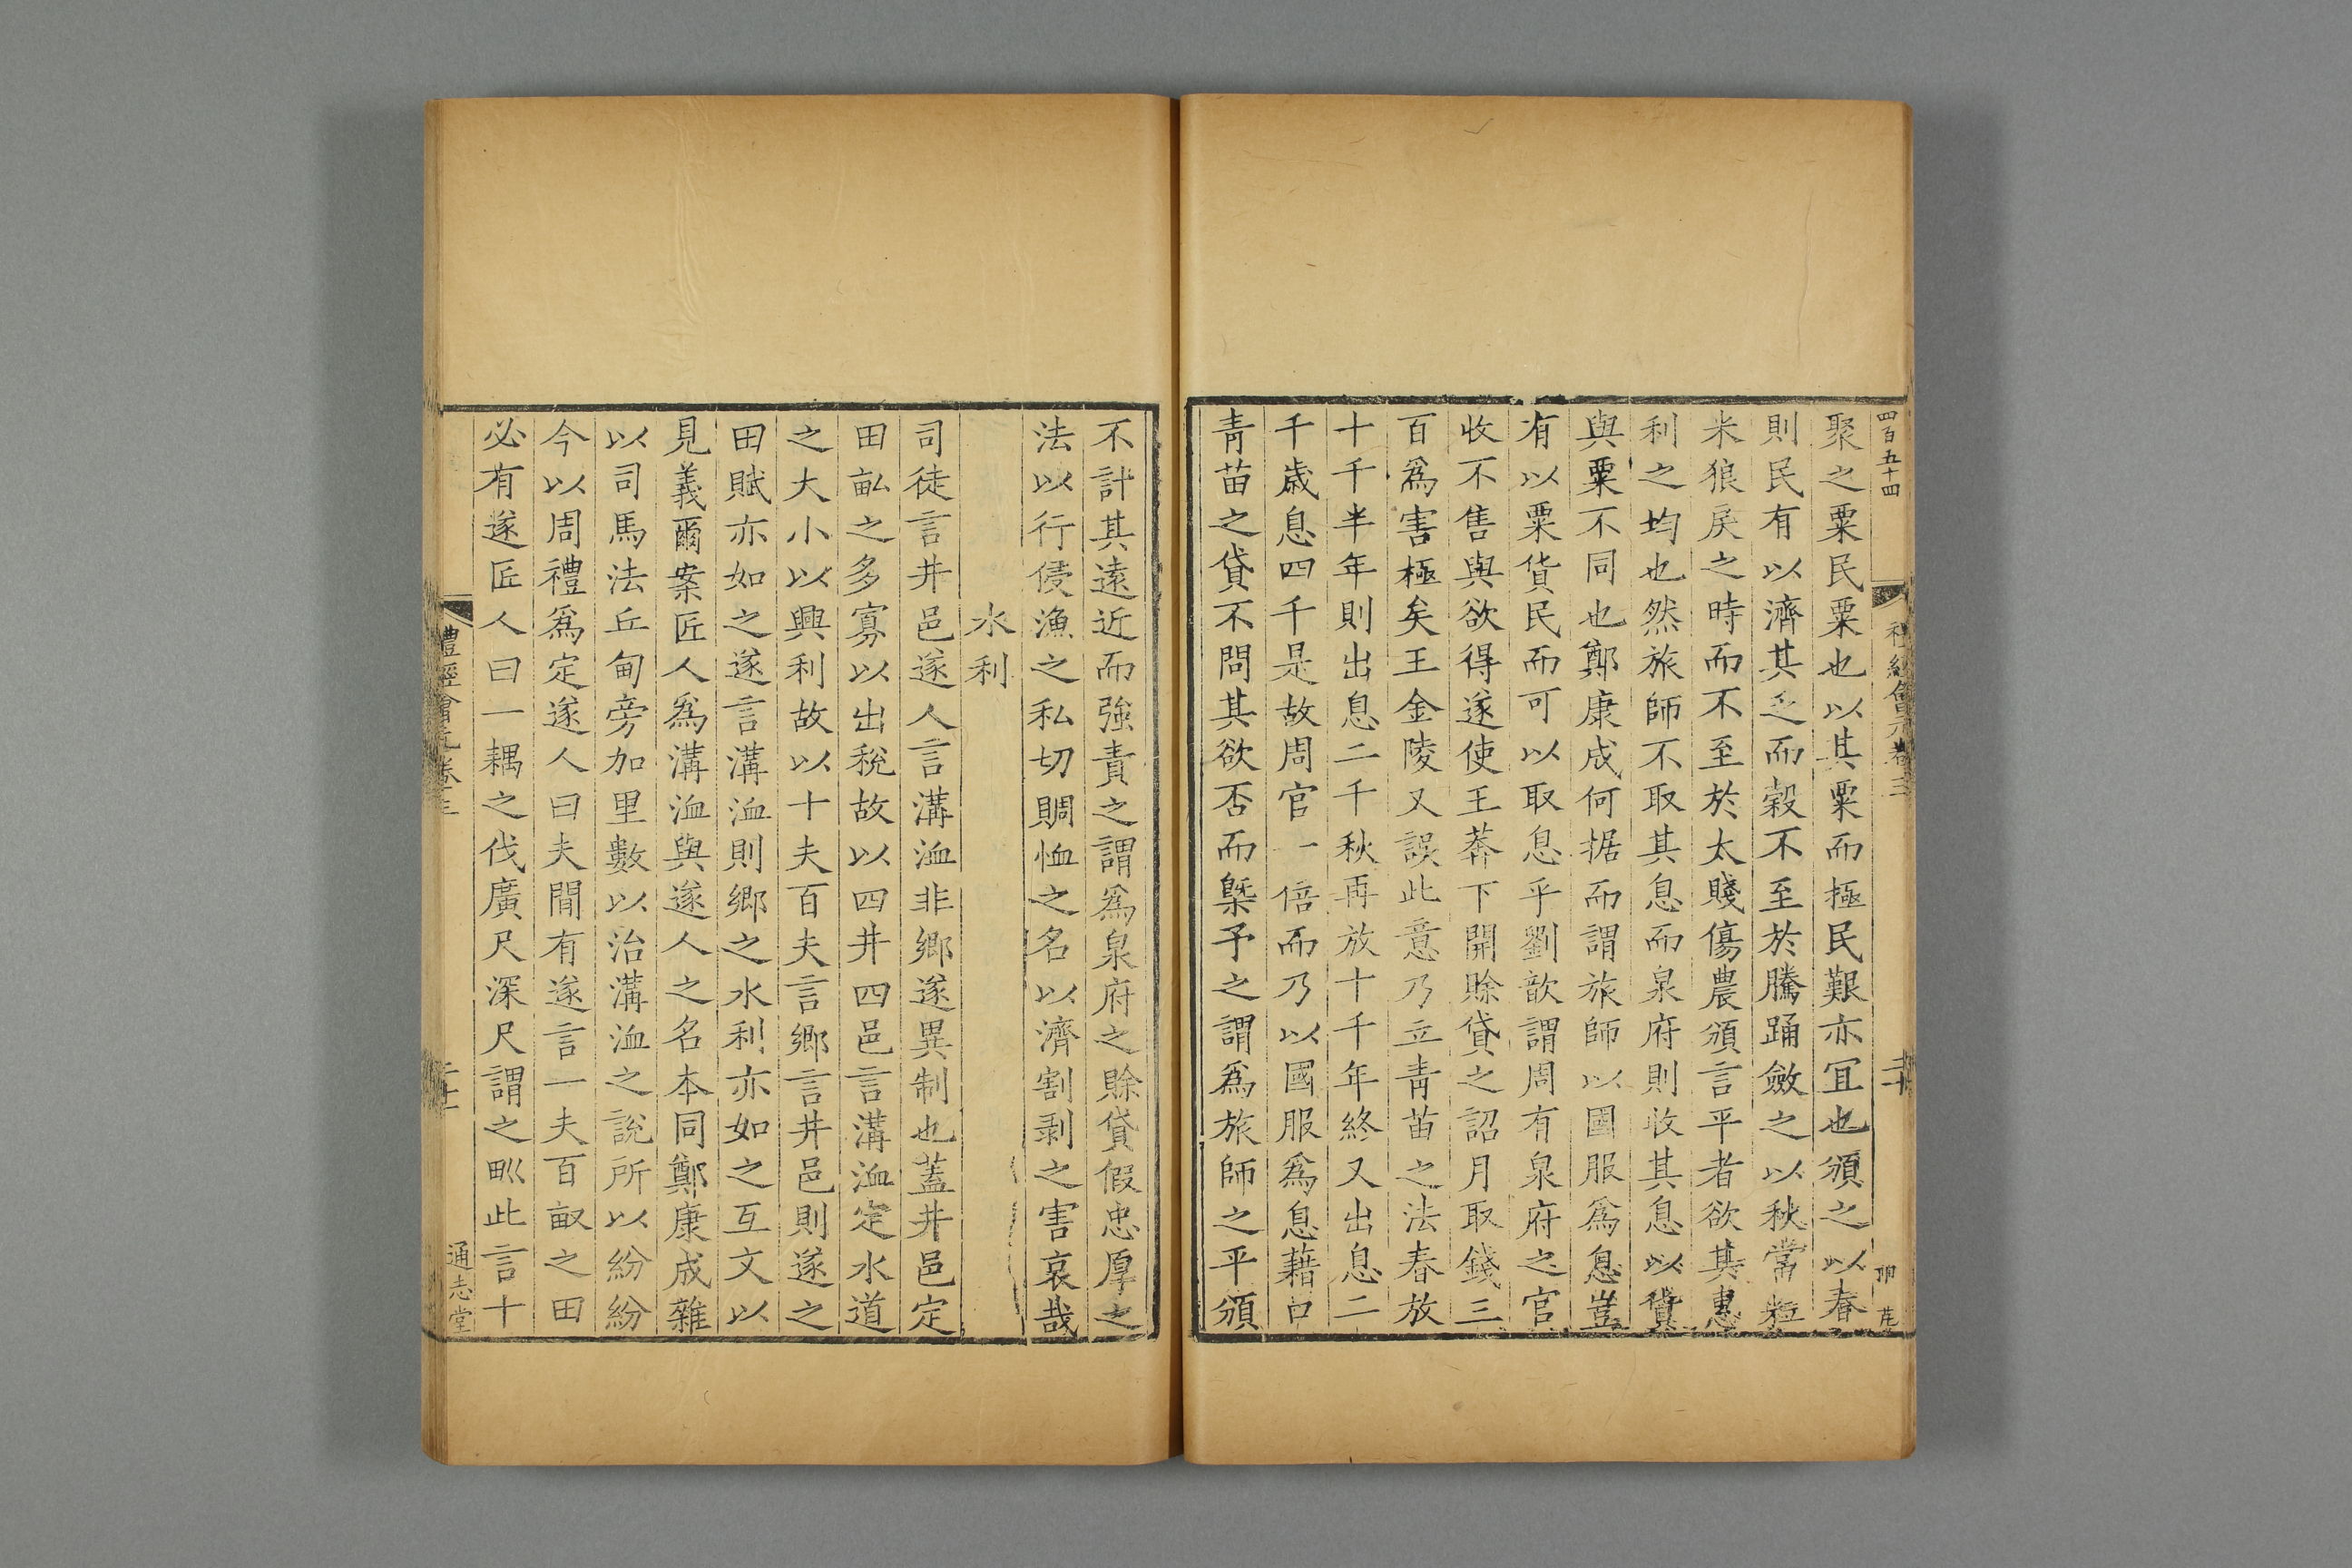 四百五十四
聚之粟民粟也以其粟而拯民艱亦宜也頒之以春
則民有以濟其乏而穀不至於騰踊斂之以秋當粒
米狼戾之時而不至於太賤傷農頒言平者欲其惠
利之均也然旅師不取其息而泉府則收其息以貨
與粟不同也鄭康成何据而謂旅師以國服爲息豈
有以粟貨民而可以取息乎劉歆謂周有泉府之官
收不售與欲得遂使王莽下開賒貸之詔月取錢三
百爲害極矣王金陵又誤此意乃立青苗之法春放
十千半年則出息二千秋再放十千年終又出息二
千歲息四千是故周官一倍而乃以國服爲息藉口
青苗之貸不問其欲否而槩予之謂爲旅師之平頒
不計其遠近而強責之謂爲泉府之賒貸假忠厚之
法以行侵漁之私切賙恤之名以濟割剥之害哀哉
水利
司徒言井邑遂人言溝洫非鄉遂異制也蓋井邑定
田畝之多寡以出稅故以四井四邑言溝洫定水道
之大小以興利故以十夫百夫言鄉言井邑則遂之
田賦亦如之遂言溝洫則鄉之水利亦如之互文以
見義爾案匠人爲溝洫與遂人之名本同鄭康成雜
以司馬法丘甸旁加里數以治溝洫之說所以紛紛
今以周禮爲定遂人曰夫間有遂言一夫百畝之田
必有遂匠人曰一耦之伐廣尺深尺謂之𤰕此言十
禮經會元卷三
通志堂